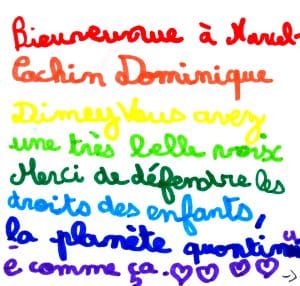 Bienvenue à Marcel-
Cachin Dominique
Dimey Vous avez
une très belle voix
Merci de défendre les
droits des enfants,
la planète
é comme ça.